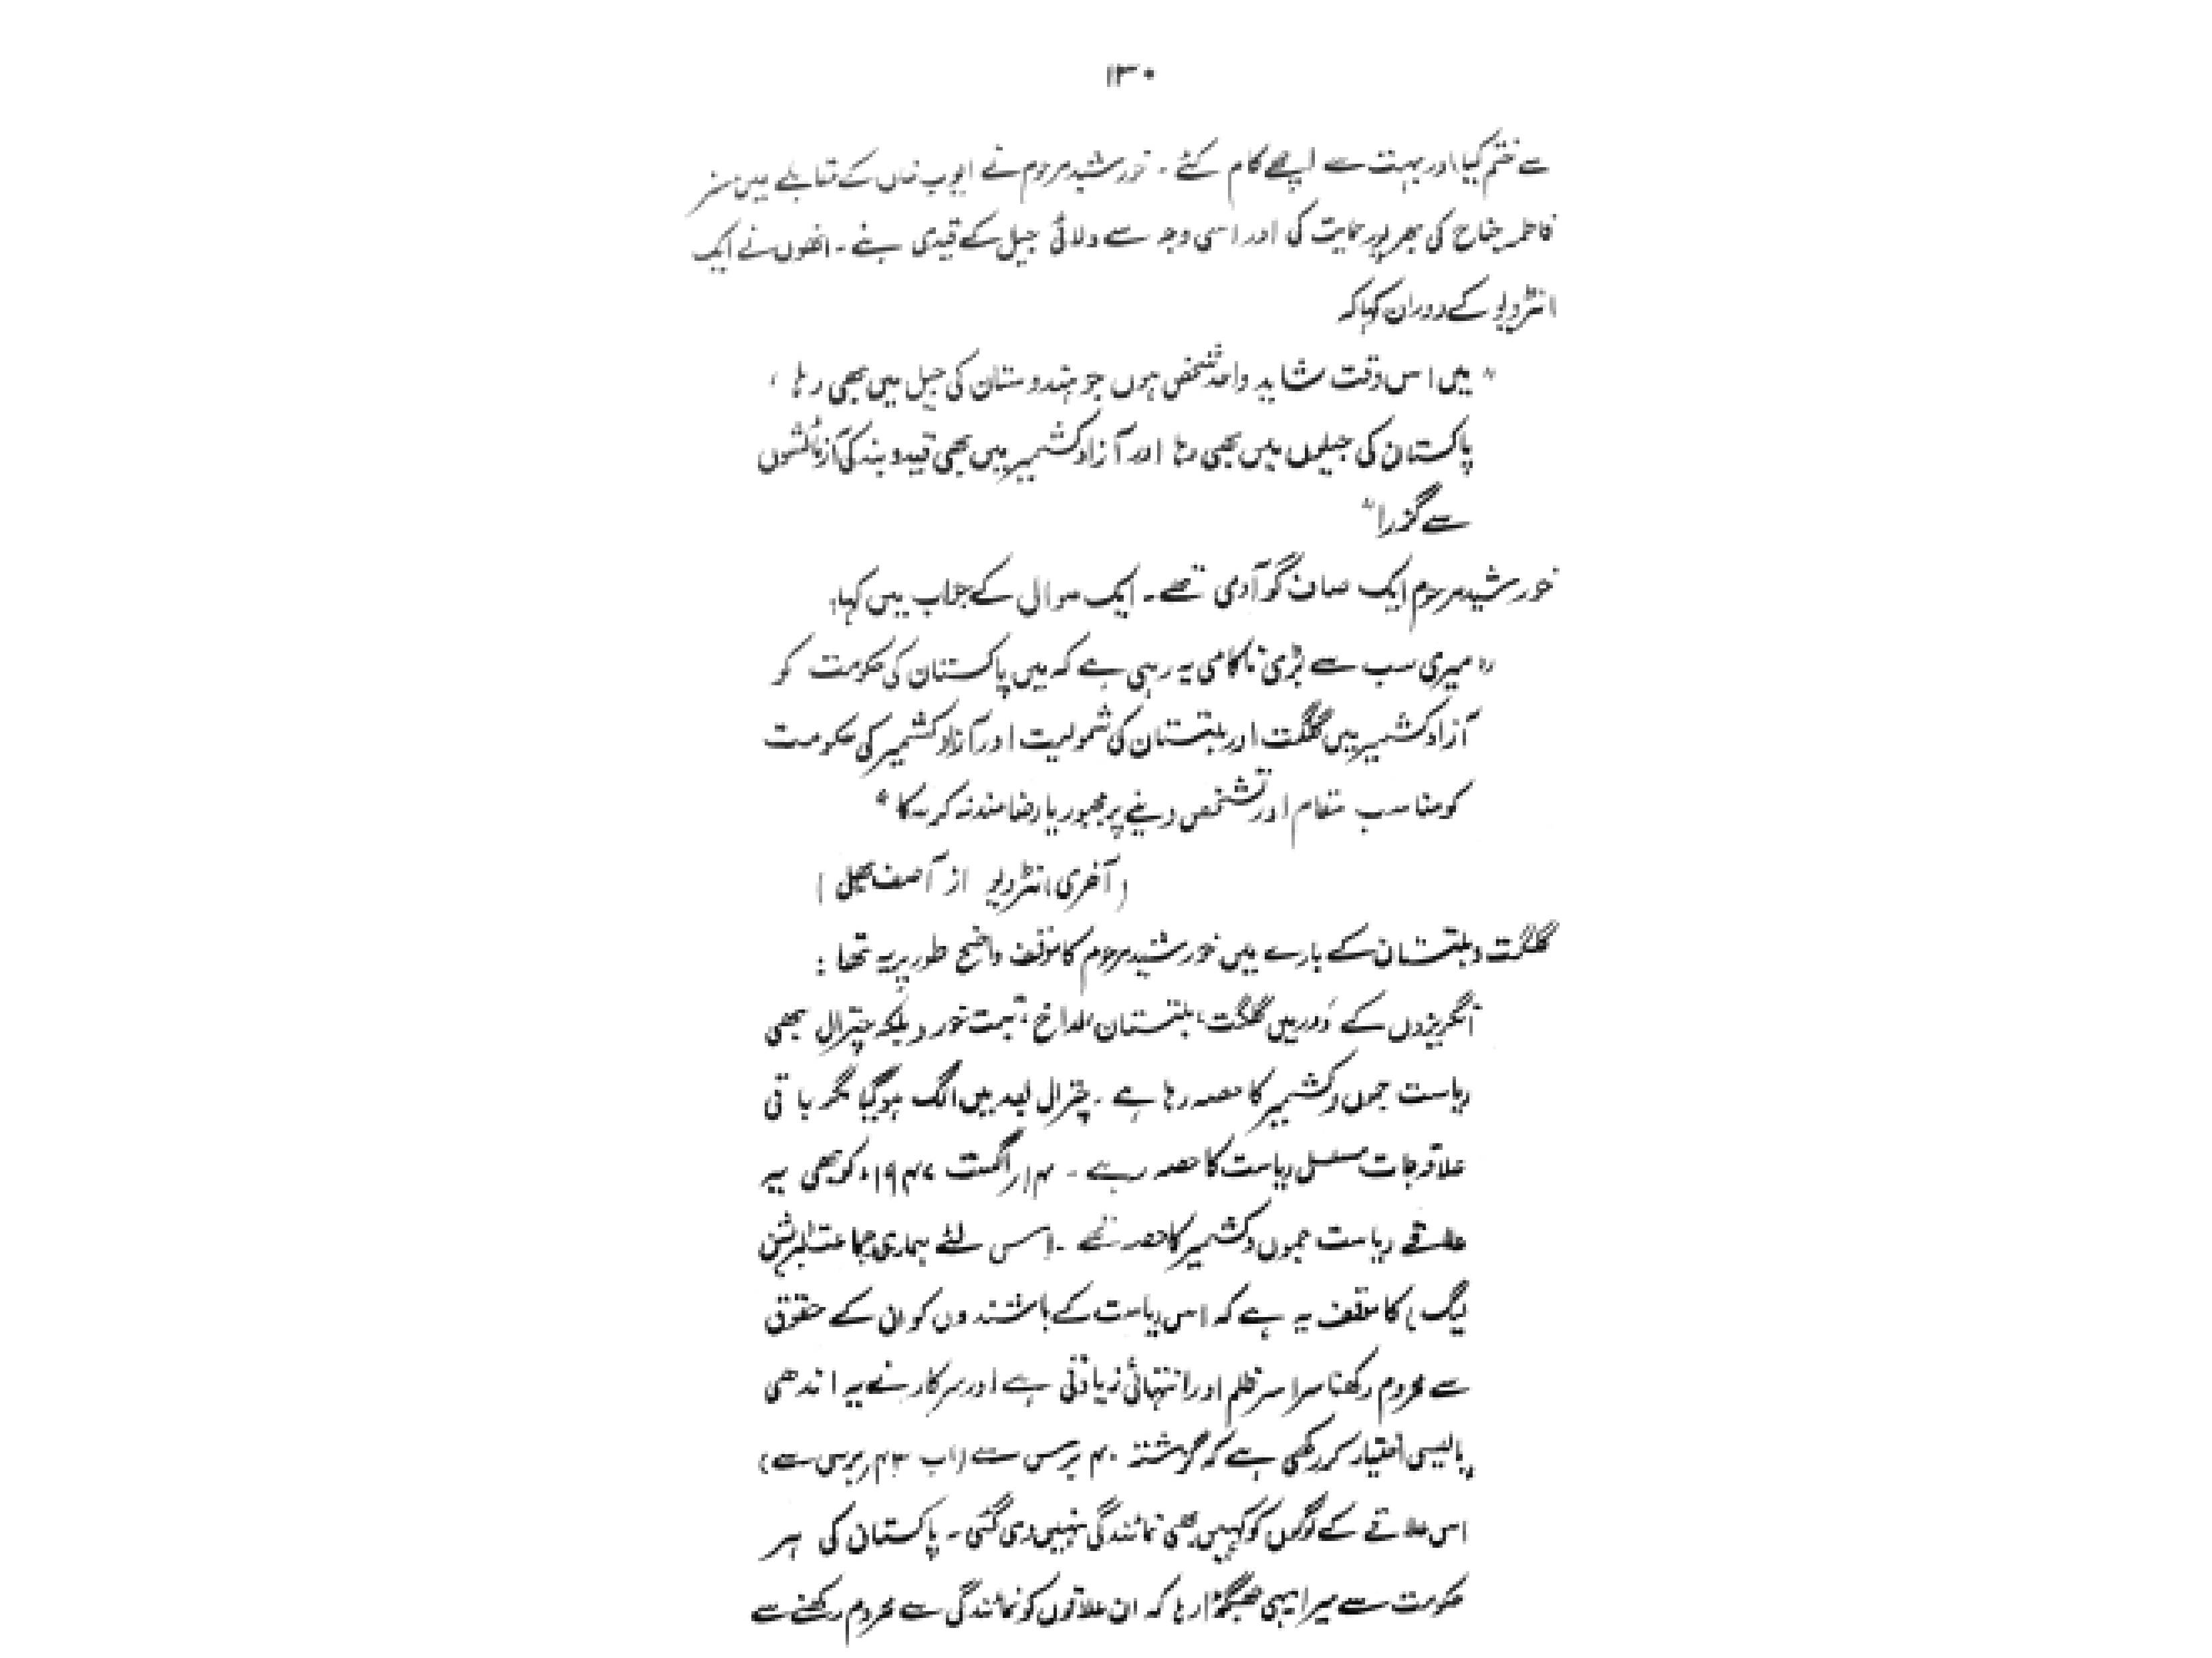 ۱۳۰
سے ختم کیا اور بہت سے اچھے کام کئے۔ خورشید مرحوم نے ایوب خاں کے مقابلے میں مسز
فاطمہ جناح کی بھرپور حمایت کی اور اسی وجہ سے دلائی جیل کے قیدی بنے۔ انھوں نے ایک
انٹرویو کے دوران کہا کہ
" میں اس وقت شاید واحد شخص ہوں جو ہندوستان کی جیل میں بھی رہا ،
پاکستان کی جیلوں میں بھی رہا اور آزاد کشمیر میں بھی قید و بند کی آزمائشوں
سے گزرا "
خورشید مرحوم ایک صاف گو آدمی تھے۔ ایک سوال کے جواب میں کہا،
" میری سب سے بڑی ناکامی یہ رہی ہے کہ میں پاکستان کی حکومت کو
آزاد کشمیر میں گلگت اور بلتستان کی شمولیت اور آزاد کشمیر کی حکومت
کو مناسب مقام اور تشخص دینے پر مجبور یا رضامند نہ کر سکا "
( آخری انٹرویو از آصف بھلی )
گلگت و بلتستان کے بارے میں خورشید مرحوم کا موقف واضح طور پر یہ تھا :
انگریزوں کے دَور میں گلگت، بلتستان لداخ، تبت خورد بلکہ چترال بھی
ریاست جموں و کشمیر کا حصہ رہا ہے۔ چترال بعد میں الگ ہو گیا مگر باقی
علاقہ جات مسلسل ریاست کا حصہ رہے۔ ۱۴ر اگست ۱۹۴۷ء کو بھی یہ
علاقے ریاست جموں و کشمیر کا حصہ تھے۔ اس لئے ہماری جماعت (لبریشن
لیگ) کا موقف یہ ہے کہ اس ریاست کے باشندوں کو ان کے حقوق
سے محروم رکھنا سراسر ظلم اور انتہائی زیادتی ہے اور سرکار نے یہ اندھی
پالیسی اختیار کر رکھی ہے کہ گزشتہ ۴۰ برس سے (اب ۴۳ برس سے)
اس علاقے کے لوگوں کو کہیں بھی نمائندگی نہیں دی گئی۔ پاکستان کی ہر
حکومت سے میرا یہی جھگڑا رہا کہ ان علاقوں کو نمائندگی سے محروم رکھنے سے